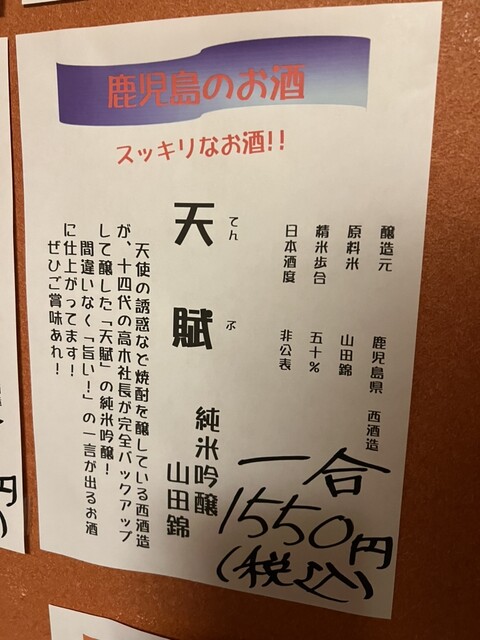 鹿児島のお酒
スッキリなお酒!!
醸造元 鹿児島県 西酒造
原料米 山田錦
精米歩合 五十%
日本酒度 非公表
てんぶ
天賦
純米吟醸
山田錦
天使の誘惑など焼酎を醸している西酒造
が、十四代の高木社長が完全バックアップ
して醸した「天賦」の純米吟醸!
間違いなく「旨い!」の一言が出るお酒
に仕上がってます!
ぜひご賞味あれ!
一合
1550円
(税込)
円
)